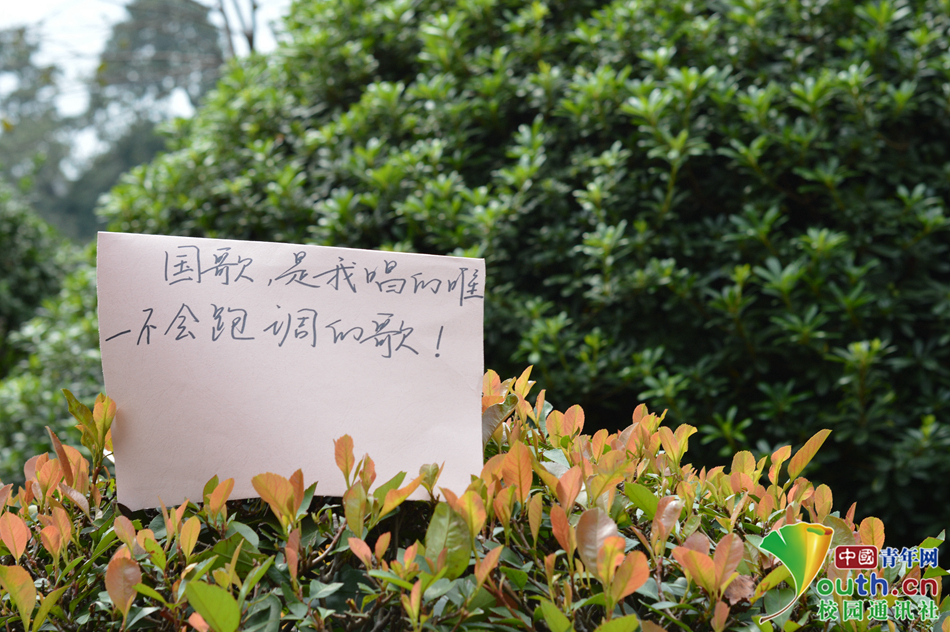 国歌,是我唱的唯
一不会跑调的歌!
中国青年网
outh.cn
校园通讯社